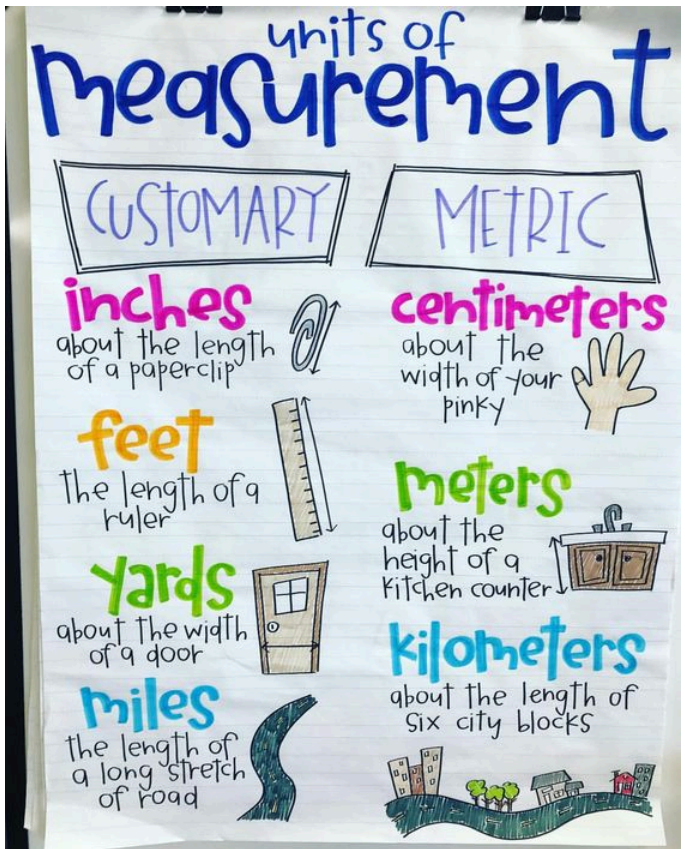 units of
measurement
CUSTOMARY
inches
about the length
of a paperclip
feet
the length of a
ruler
yards
about the width
of a door
miles
the length of
a long stretch
of road
METRIC
centimeters
about the
width of your
pinky
meters
about the
height of a
kitchen counter
kilometers
about the length of
six city blocks